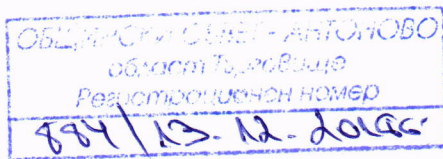 ОБЩИНСКИ СЪВЕТ - АНТОНОВО
област Търговище
Регистрационен номер
884/13.12.2018г.